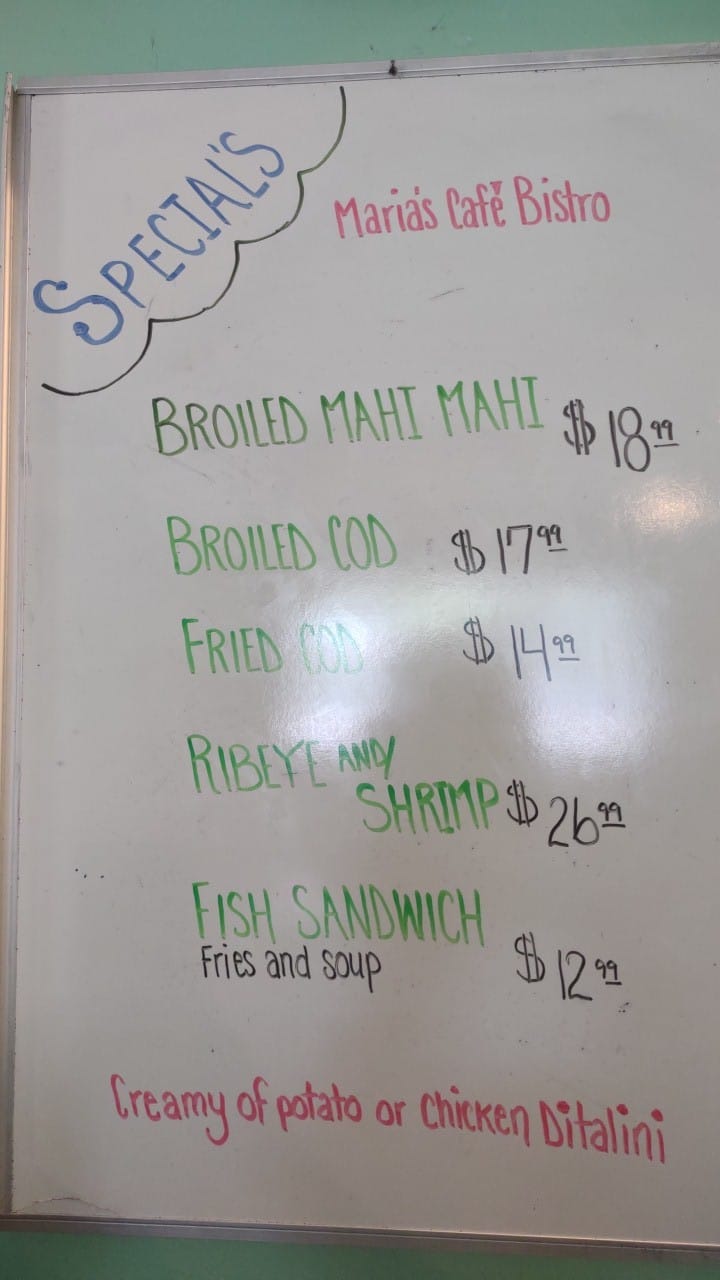 SPECIAL'S
Maria's Café Bistro
BROILED MAHI MAHI $18.99
BROILED COD $17.99
FRIED COD $14.99
RIBEYE AND/
SHRIMP $26.99
FISH SANDWICH
Fries and soup $12.99
Creamy of potato or chicken Ditalini